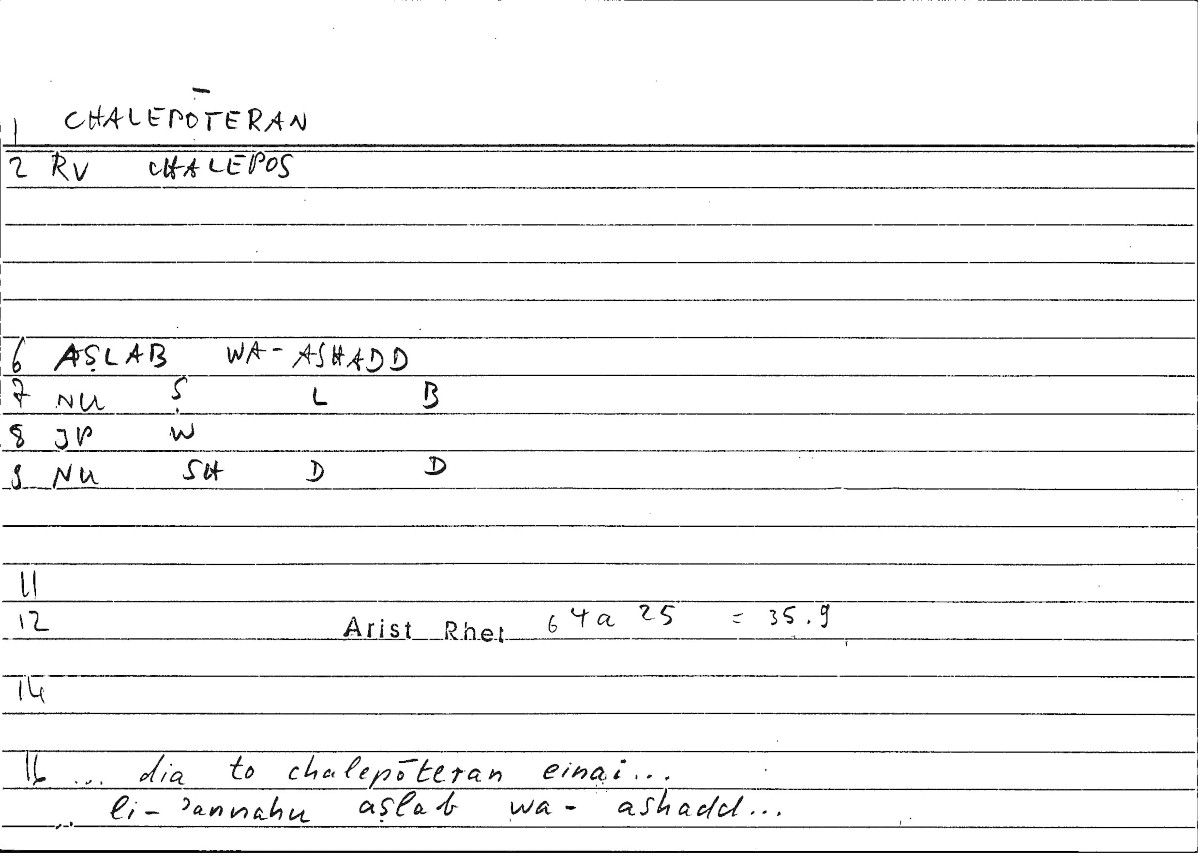 1 CHALEPŌTERAN
2 RV CHALEPOS
6 AṢLAB WA-ASHADD
7 NU Ṣ L B
8 JP W
9 NU SH D D
11
12 Arist Rhet 64a 25 = 35.9
14
16 ... dia to chalepōteran einai...
.. li-ʾannahu aṣlab wa- ashadd...